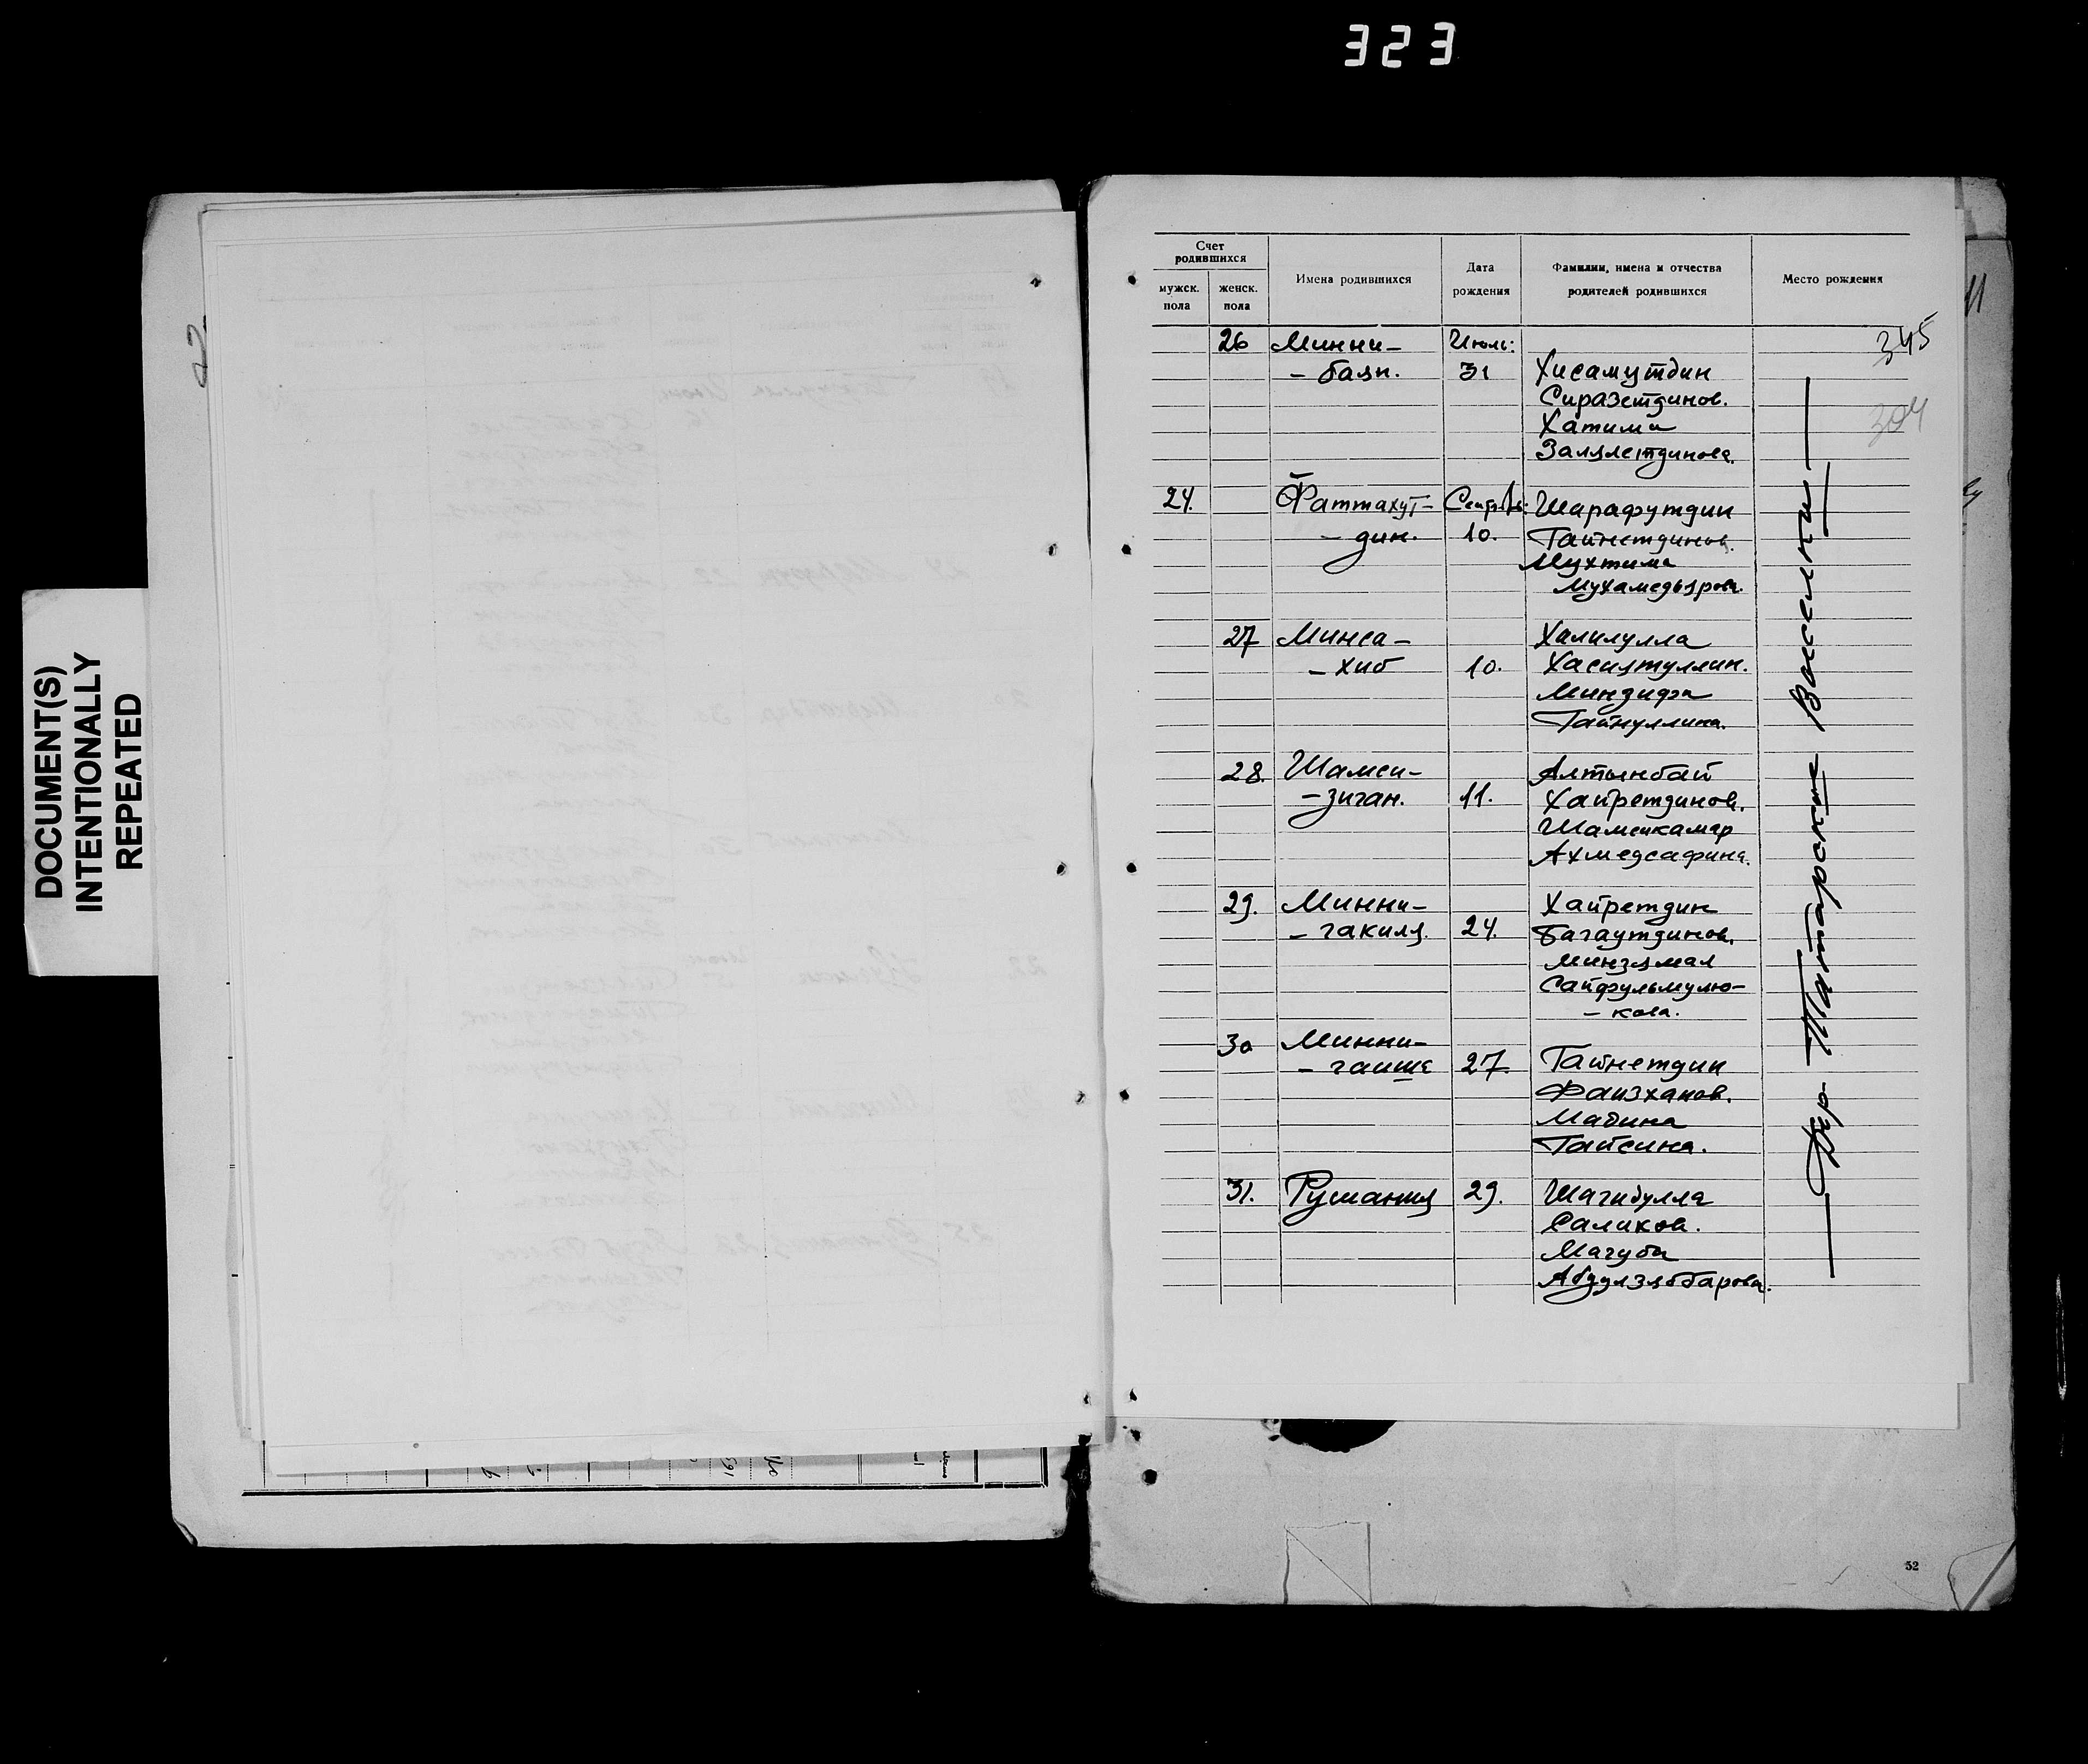 323
DOCUMENT(S)
INTENTIONALLY
REPEATED
Счет
родившихся
мужск.
пола
женск.
пола
Имена родившихся
Дата
рождения
Фамилии, имена и отчества
родителей родившихся
Место рождения
345
304
26 Минни- Июль:
- баян. 31 Хисамутдин
Сиразетдинов.
Хатима
Залялетдинова.
24. Фаттахут- Шарафутдин
- дин. 10. Гайнетдинов.
Мухтима
Мухамедьярова.
27 Минса- Халилулла
- хиб 10. Хасиятуллин.
Минзифа
Гайнуллина.
28. Шамси- Алтынбай
- зиган. 11. Хайретдинов.
Шамсикамар
Ахмедсафина.
29. Минни- Хайретдин
- гакиля. 24. Багаутдинов.
Минзямал
Сайфульмулю-
- кова.
30 Минни-
- гаише 27. Гайнетдин
Фаизханов.
Мадина
Гайсина.
31. Румания 29. Шагибулла
Саликов.
Магуба
Абдулзяббарова.
Дер Татарские Выселки
52